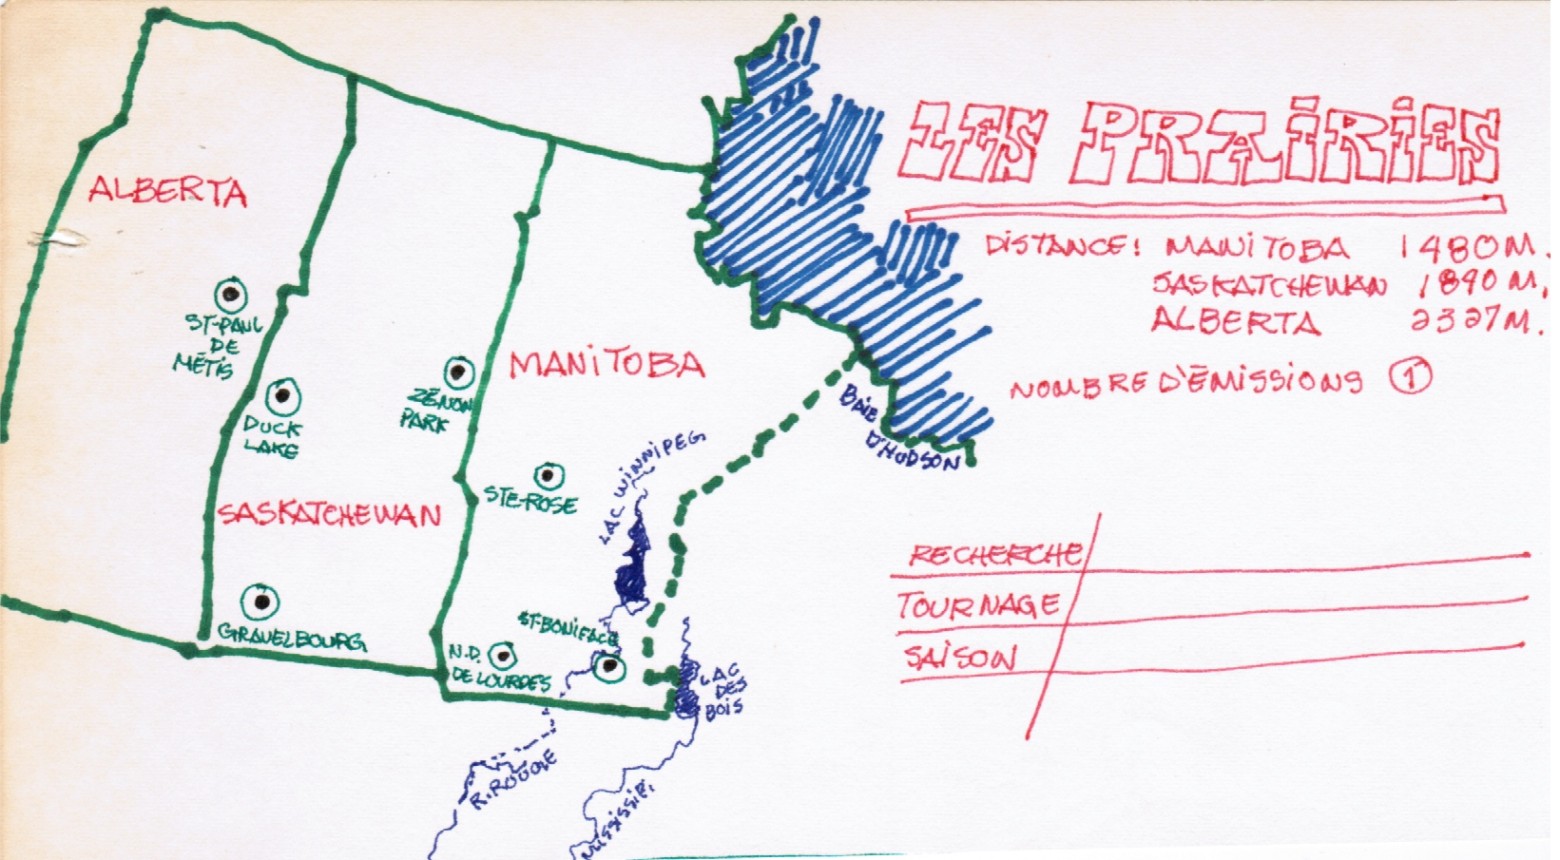 LES PRAIRIES
DISTANCE: MANITOBA 1480M.
SASKATCHEWAN 1890M.
ALBERTA 2327M.
NOMBRE D'ÉMISSIONS 1
ALBERTA
ST-PAUL
DE
MÉTIS
DUCK
LAKE
ZÉNON
PARK
MANITOBA
BAIE
D'HUDSON
LAC WINNIPEG
STE-ROSE
SASKATCHEWAN
GRAVELBOURG
N.D.
DE LOURDES
ST-BONIFACE
LAC
DES
BOIS
R. ROUGE
MISSISSIPI
RECHERCHE
TOURNAGE
SAISON